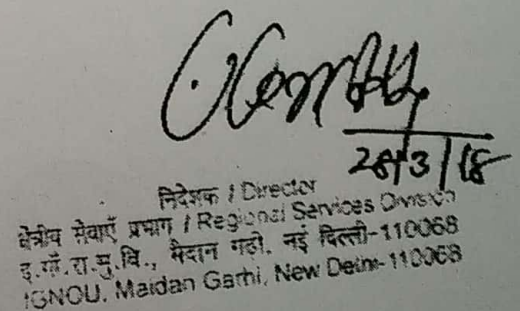 28/3/18
निदेशक / Director
क्षेत्रीय सेवाएँ प्रभाग / Regional Services Division
इ.गाँ.रा.मु.वि., मैदान गढ़ी, नई दिल्ली-110068
IGNOU, Maidan Garhi, New Delhi-110068